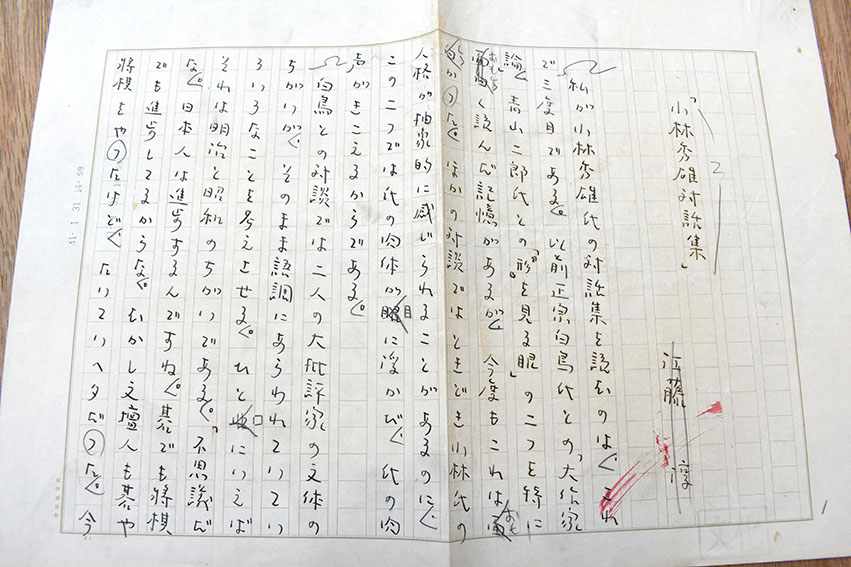 「小林秀雄対話集」
江藤 淳
私が小林秀雄氏の対話集を読むのは、これ
で三度目である。以前正宗白鳥氏との「大作家
論」、青山二郎氏との「『形』を見る眼」の二つを特に
おもしろく読んだ記憶があるが、今度もこれはおも
しろかった。ほかの対談ではときどき小林氏の
人格が抽象的に感じられることがあるのに、
この二つでは氏の肉体が目に浮かび、氏の肉
声がきこえるからである。
白鳥との対談では二人の大批評家の文体の
ちがいが、そのまま語調にあらわれていてい
ろいろなことを考えさせる。ひと口にいえば
それは明治と昭和のちがいである。「不思議だ
な。日本人は進歩するんですね。碁でも将棋
でも進歩してるからな。むかし文壇人も碁や
将棋をやったけど、たいていヘタだった。今
41. 1 31 14-59
1